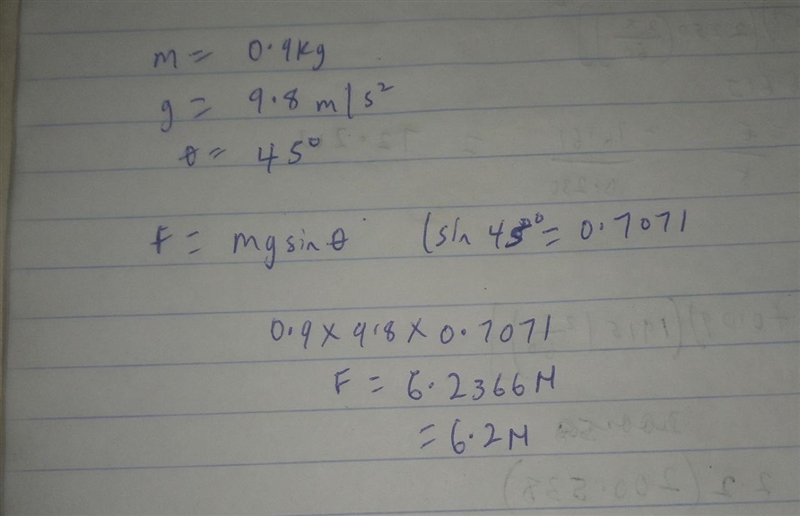 m = 0.9kg
g = 9.8 m/s²
θ = 45°
F = mg sin θ (sin 45° = 0.7071
0.9 × 9.8 × 0.7071
F = 6.2366N
= 6.2N